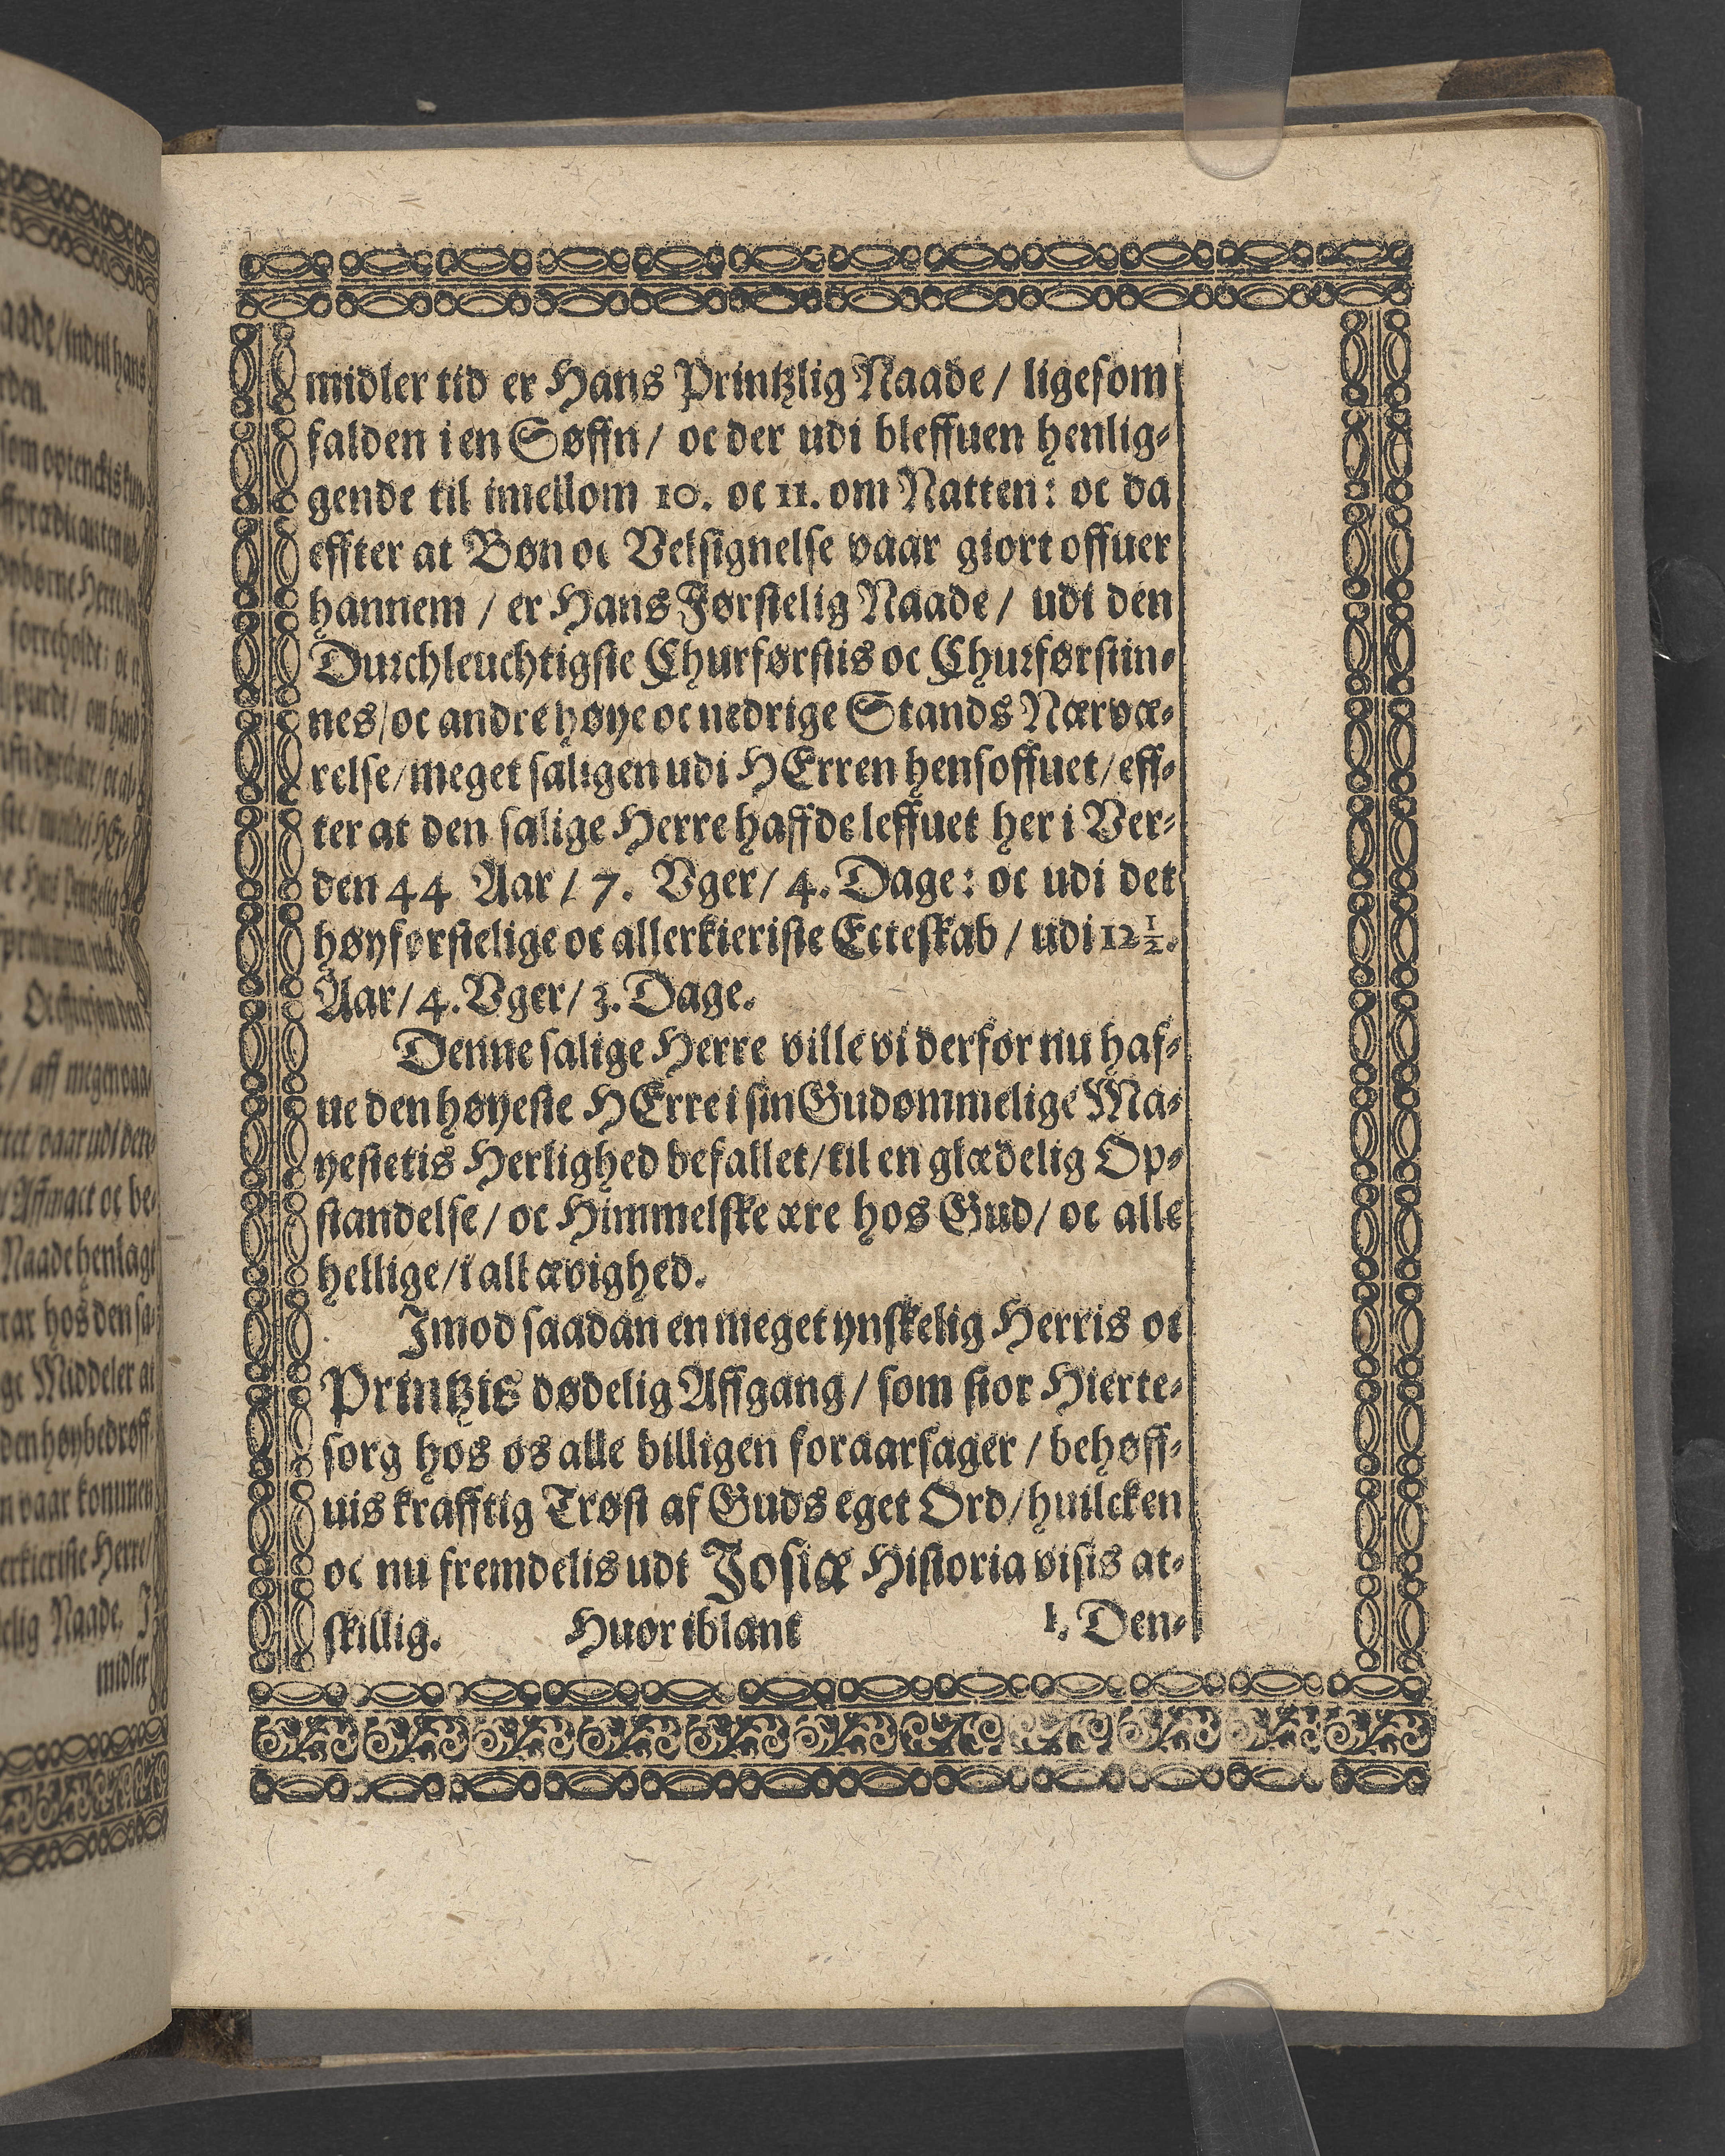 midler tid er Hans Printzlig Naade / ligesom
falden i en Søffn / oc der udi bleffuen henlig-
gende til imellom 10. oc 11. om Natten: oc da
effter at Bøn oc Velsignelse vaar giort offuer
hannem / er Hans Førstelig Naade / udi den
Durchleuchtigste Churførstis oc Churførstin-
nes / oc andre høye oc nedrige Stands Nærvæ-
relse / meget saligen udi HErren hensoffuet / eff-
ter at den salige Herre haffde leffuet her i Ver-
den 44 Aar / 7. Vger / 4. Dage: oc udi det
høyførstelige oc allerkieriste Ecteskab / udi 12 1/2.
Aar / 4. Vger / 3. Dage.
Denne salige Herre ville vi derfor nu haf-
ue den høyeste HErre i sin Gudommelige Ma-
yestetis Herlighed befallet / til en glædelig Op-
standelse / oc Himmelske ære hos Gud / oc alle
hellige / i all ævighed.
Imod saadan en meget ynskelig Herris oc
Printzis dødelig Affgang / som stor Hierte-
sorg hos os alle billigen foraarsager / behøff-
uis krafftig Trøst af Guds eget Ord / huilcken
oc nu fremdelis udi Josiæ Historia visis at-
skillig. Huor iblant 1. Den-